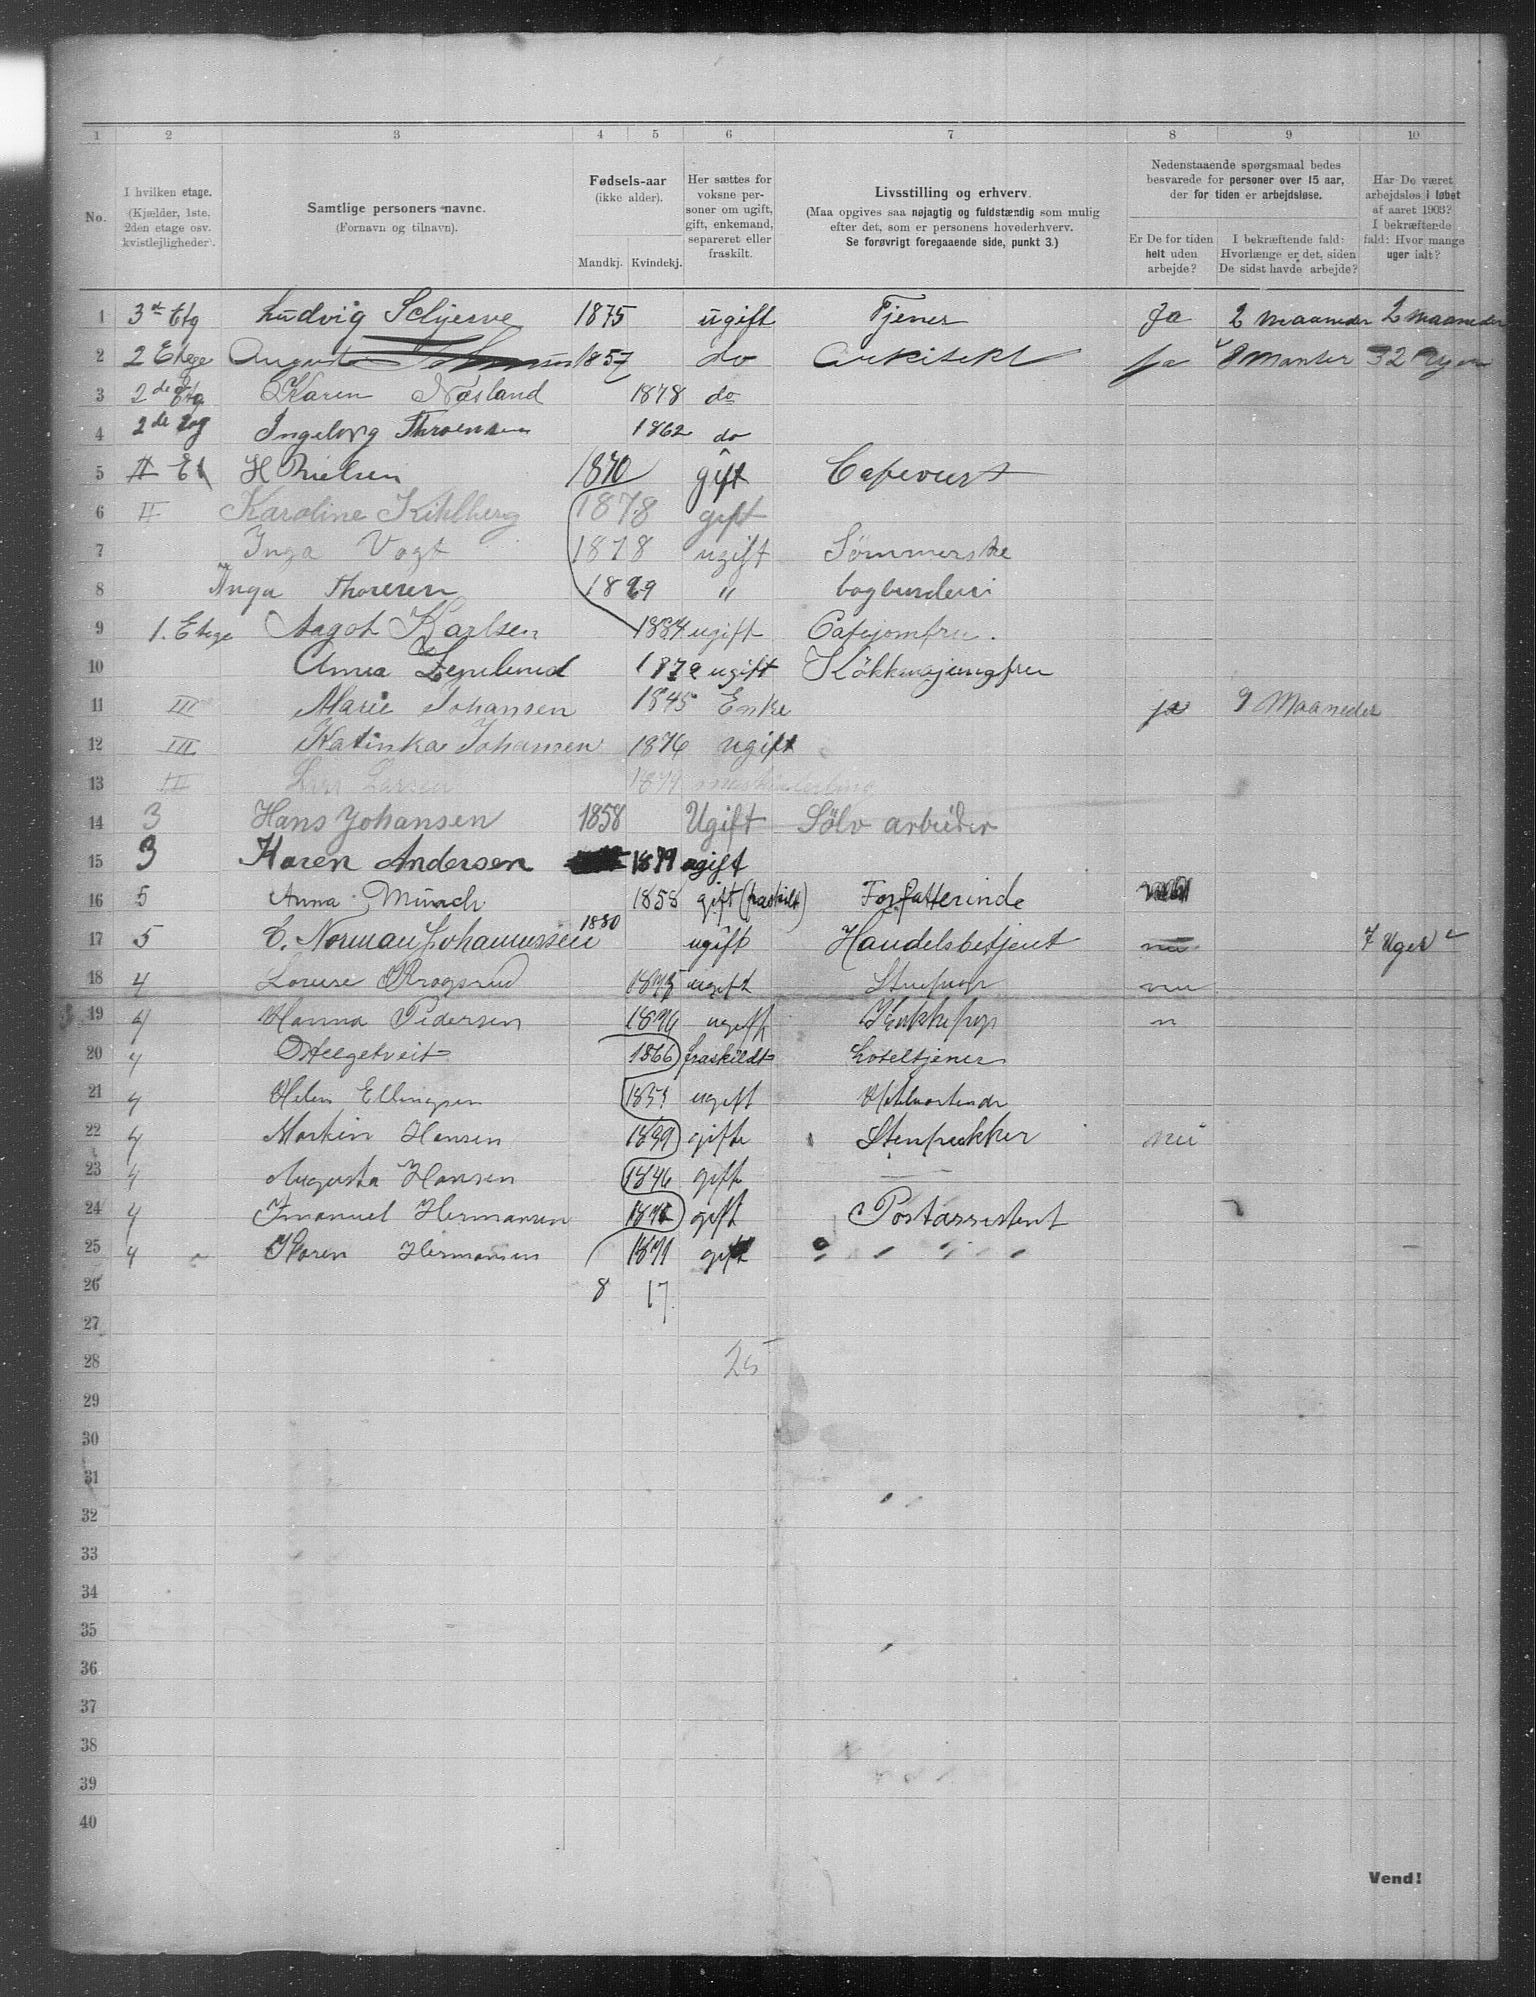 1 2 3 4 5 6 7 8 9 10
No.
I hvilken etage.
(Kjælder, 1ste. 2den etage osv. kvistlejligheder).
Samtlige personers navne.
(Fornavn og tilnavn).
Fødsels-aar
(ikke alder).
Mandkj. Kvindekj.
Her sættes for voksne personer om ugift, gift, enkemand, separeret eller fraskilt.
Livsstilling og erhverv.
(Maa opgives saa nøjagtig og fuldstændig som mulig efter det, som er personens hovederhverv.
Se forøvrigt foregaaende side, punkt 3.)
Nedenstaaende spørgsmaal bedes besvarede for personer over 15 aar, der for tiden er arbejdsløse.
Er De for tiden helt uden arbejde?
I bekræftende fald: Hvorlænge er det, siden De sidst havde arbejde?
Har De været arbejdsløs i løbet af aaret 1903? I bekræftende fald: Hvor mange uger ialt?
1 3die Etg Ludvig Schjerve 1875 ugift Tjener Ja 2 maaneder 2 maaneder
2 2 Etege August 1857 do Arkitekt ja 8 Manter 32 Uger
3 2de Etg Karen Næsland 1878 do
4 2de Etg Ingeborg 1862 do
5 II Et H Nielsen 1870 gift Cafevert
6 II Karoline Kihlberg 1878 gift
7 Inga Vogt 1878 ugift Sømmerske
8 Inga Thoresen 1899 " bogbinderi
9 1. Etege Aagot Karlsen 1884 ugift Cafejomfru.
10 Anna 1879 ugift Kökkenjungfru
11 III Marie Johansen 1845 Enke ja 9 Maaneder
12 III Katinka Johansen 1876 ugift
13 III Larsen
14 3 Hans Johansen 1858 Ugift Sölv arbeider
15 3 Karen Andersen 1879 ugift
16 5 Anna Münch 1858 gift (fraskilt) Forfatterinde
17 5 C. Norman Johannessen 1880 ugift Handelsbetjent nei 7 Uger
18 4 Lovise Krogsrud 1875 ugift nei
19 4 Hanna Pedersen 1876 ugift "
20 4 O Helgetveit 1866 fraskildt hoteltjener
21 4 Helen Ellingsen 1851 ugift
22 4 Martin Hansen 1839 gift Stenhukker nei
23 4 Augusta Hansen 1846 gift
24 4 Imanuel Hermansen gift Postassistent
25 4 Karen Hermansen 1871 gift " " " "
26 8 17
27
28 25
29
30
31
32
33
34
35
36
37
38
39
40
Vend!